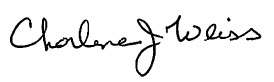 Charlene J Weiss